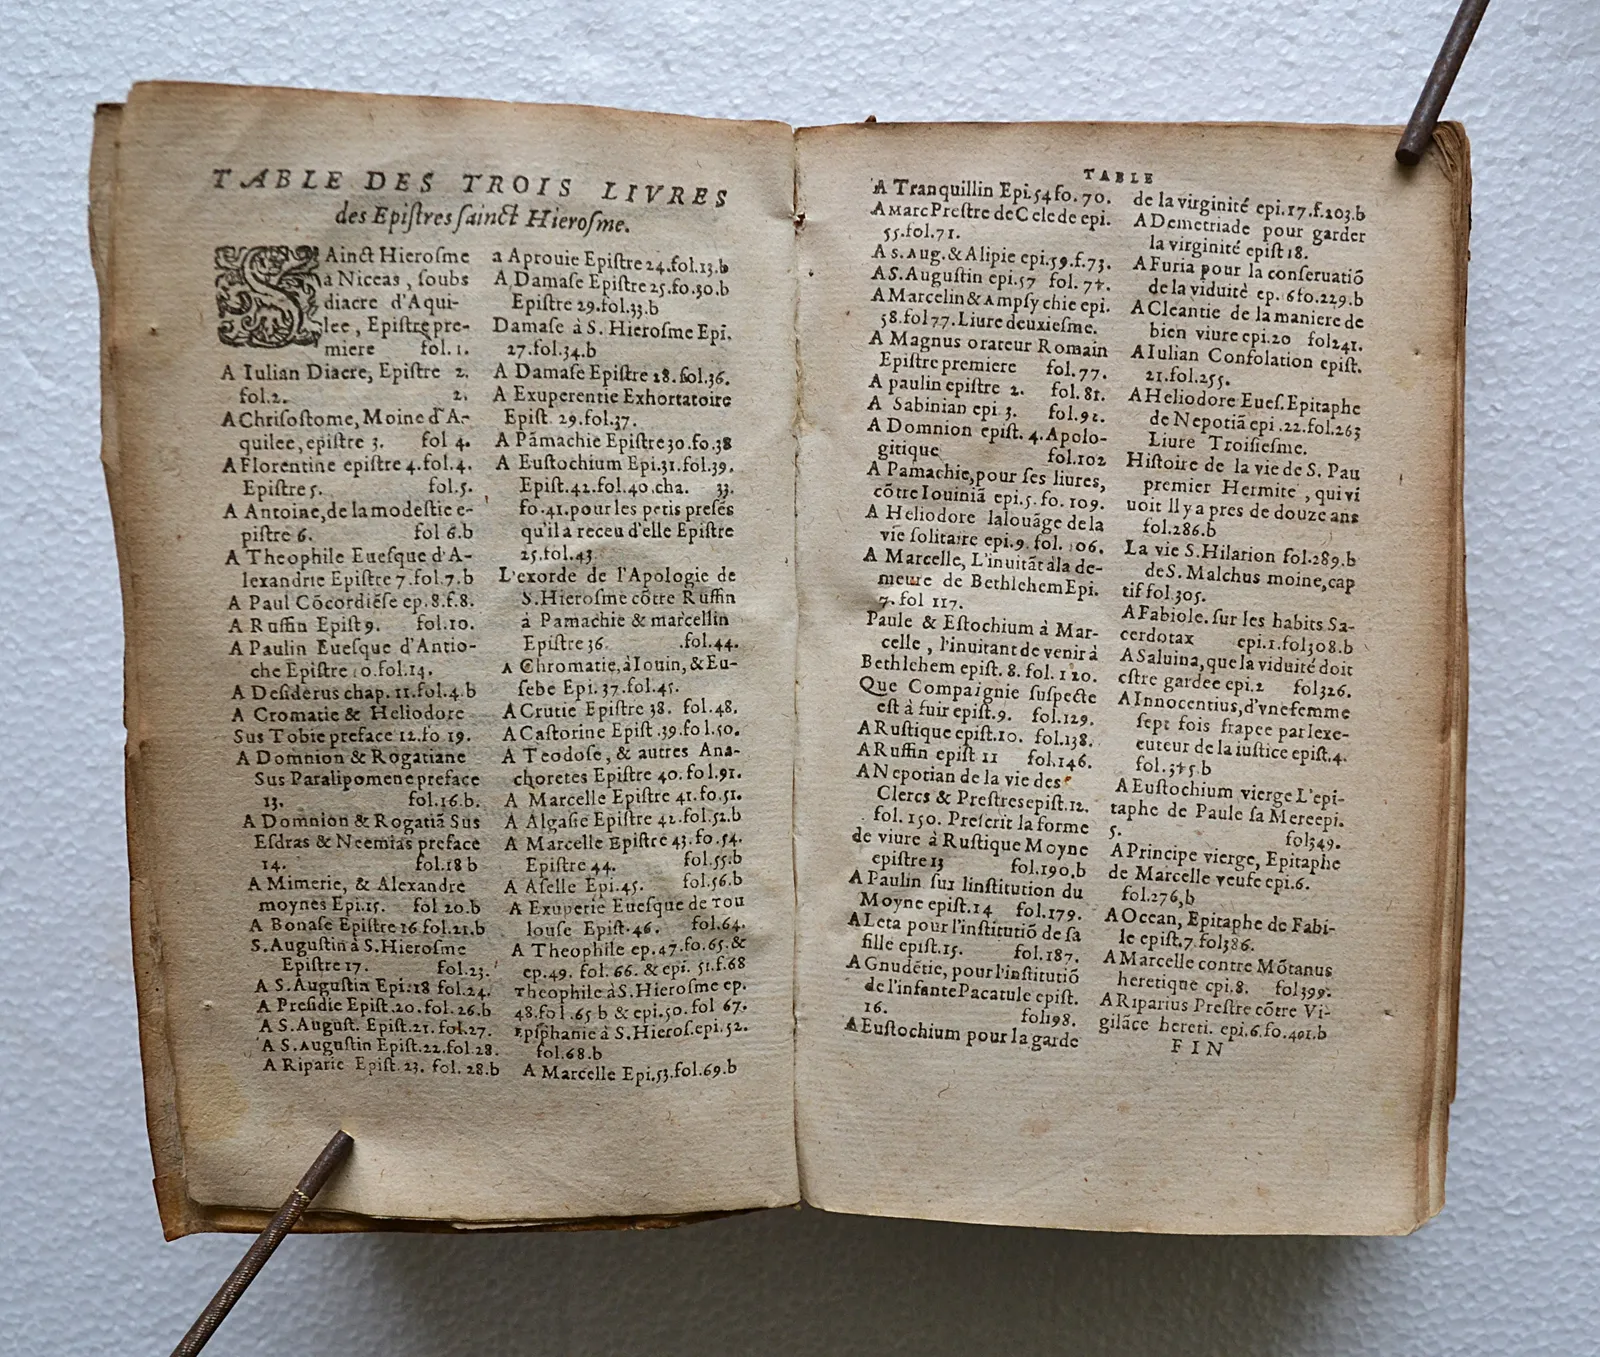 TABLE DES TROIS LIVRES
des Epiſtres ſainct Hieroſme.
SAinct Hieroſme
à Niceas, ſoubs
diacre d'Aqui-
lee, Epiſtre pre-
miere fol. 1.
A Iulian Diacre, Epiſtre 2.
fol. 2. 2.
A Chriſoſtome, Moine d'A-
quilee, epiſtre 3. fol 4.
A Florentine epiſtre 4. fol. 4.
Epiſtre 5. fol. 5.
A Antoine, de la modeſtie e-
piſtre 6. fol 6.b
A Theophile Eueſque d'A-
lexandrie Epiſtre 7. fol. 7.b
A Paul Cõcordiẽſe ep. 8. f. 8.
A Ruffin Epiſt 9. fol. 10.
A Paulin Eueſque d'Antio-
che Epiſtre 10. fol. 14.
A Deſiderus chap. 11. fol. 4.b
A Cromatie & Heliodore
Sus Tobie preface 12. fo 19.
A Domnion & Rogatiane
Sus Paralipomene preface
13. fol. 16.b.
A Domnion & Rogatiã Sus
Eſdras & Neemias preface
14. fol. 18 b
A Mimerie, & Alexandre
moynes Epi. 15. fol 20.b
A Bonaſe Epiſtre 16 fol. 21.b
S. Auguſtin à S. Hieroſme
Epiſtre 17. fol. 23.
A S. Auguſtin Epi: 18 fol. 24.
A Preſidie Epiſt. 20. fol. 26.b
A S. Auguſt. Epiſt. 21. fol. 27.
A S. Auguſtin Epiſt. 22. fol. 28.
A Riparie Epiſt. 23. fol. 28.b
a Aprouie Epiſtre 24. fol. 13.b
A Damaſe Epiſtre 25. fo. 30.b
Epiſtre 29. fol. 33.b
Damaſe à S. Hieroſme Epi.
27. fol. 34.b
A Damaſe Epiſtre 28. fol. 36.
A Exuperentie Exhortatoire
Epiſt. 29. fol. 37.
A Pãmachie Epiſtre 30. fo. 38
A Euſtochium Epi. 31. fol. 39.
Epiſt. 42. fol. 40. cha. 33.
fo. 41. pour les petis preſẽs
qu'il a receu d'elle Epiſtre
25. fol. 43.
L'exorde de l'Apologie de
S. Hieroſme cõtre Ruffin
à Pamachie & marcellin
Epiſtre 36. fol. 44.
A Chromatie, à Iouin, & Eu-
ſebe Epi. 37. fol. 45.
A Crutie Epiſtre 38. fol. 48.
A Caſtorine Epiſt. 39. fol. 50.
A Teodoſe, & autres Ana-
choretes Epiſtre 40. fol. 91.
A Marcelle Epiſtre 41. fo. 51.
A Algaſie Epiſtre 42. fol. 52.b
A Marcelle Epiſtre 43. fo. 54.
Epiſtre 44. fol. 55.b
A Aſelle Epi. 45. fol. 56.b
A Exuperie Eueſque de Tou
louſe Epiſt. 46. fol. 64.
A Theophile ep. 47. fo. 65. &
ep. 49. fol. 66. & epi. 51. f. 68
Theophile à S. Hieroſme ep.
48. fol. 65 b & epi. 50. fol 67.
Epiphanie à S. Hieroſ. epi. 52.
fol. 68.b
A Marcelle Epi. 53. fol. 69.b
TABLE
A Tranquillin Epi. 54 fo. 70.
A Marc Preſtre de Celede epi.
55. fol. 71.
A S. Aug. & Alipie epi. 59. f. 73.
A S. Auguſtin epi. 57 fol. 74.
A Marcelin & Ampſychie epi.
58. fol 77. Liure deuxieſme.
A Magnus orateur Romain
Epiſtre premiere fol. 77.
A paulin epiſtre 2. fol. 81.
A Sabinian epi 3. fol. 91.
A Domnion epiſt. 4. Apolo-
gitique fol. 102
A Pamachie, pour ſes liures,
cõtre Iouiniã epi. 5. fo. 109.
A Heliodore lalouãge de la
vie ſolitaire epi. 9. fol. 106.
A Marcelle, L'inuitãt à la de-
meure de Bethlehem Epi.
7. fol 117.
Paule & Eſtochium à Mar-
celle, l'inuitant de venir à
Bethlehem epiſt. 8. fol. 120.
Que Compaignie ſuſpecte
eſt à fuir epiſt. 9. fol. 129.
A Ruſtique epiſt. 10. fol. 138.
A Ruffin epiſt 11 fol. 146.
A Nepotian de la vie des
Clercs & Preſtres epiſt. 12.
fol. 150. Preſcrit la forme
de viure à Ruſtique Moyne
epiſtre 13 fol. 190.b
A Paulin ſur linſtitution du
Moyne epiſt. 14 fol. 179.
A Leta pour l'inſtitutiõ de ſa
fille epiſt. 15. fol. 187.
A Gnudẽtie, pour l'inſtitutiõ
de l'infante Pacatule epiſt.
16. fol 198.
A Euſtochium pour la garde
de la virginité epi. 17. f. 203.b
A Demetriade pour garder
la virginité epiſt 18.
A Furia pour la conſeruatiõ
de la viduité ep. 6 fo. 229.b
A Cleantie de la maniere de
bien viure epi. 20 fol 241.
A Iulian Conſolation epiſt.
21. fol. 255.
A Heliodore Eueſ. Epitaphe
de Nepotiã epi. 22. fol. 263
Liure Troiſieſme.
Hiſtoire de la vie de S. Pau
premier Hermite, qui vi
uoit Il y a pres de douze ans
fol. 286.b
La vie S. Hilarion fol. 289.b
de S. Malchus moine, cap
tif fol. 305.
A Fabiole. ſur les habits Sa-
cerdotax epi. 1. fol 308.b
A Saluina, que la viduité doit
eſtre gardee epi. 2 fol 326.
A Innocentius, d'vne femme
ſept fois frapee par lexe-
euteur de la iuſtice epiſt. 4.
fol. 345.b
A Euſtochium vierge L'epi-
taphe de Paule ſa Mere epi.
5. fol 349.
A Principe vierge, Epitaphe
de Marcelle veufe epi. 6.
fol. 276,b
A Ocean, Epitaphe de Fabi-
le epiſt. 7. fol 386.
A Marcelle contre Mõtanus
heretique epi. 8. fol 399.
A Riparius Preſtre cõtre Vi-
gilãce hereti. epi. 6. fo. 401.b
FIN